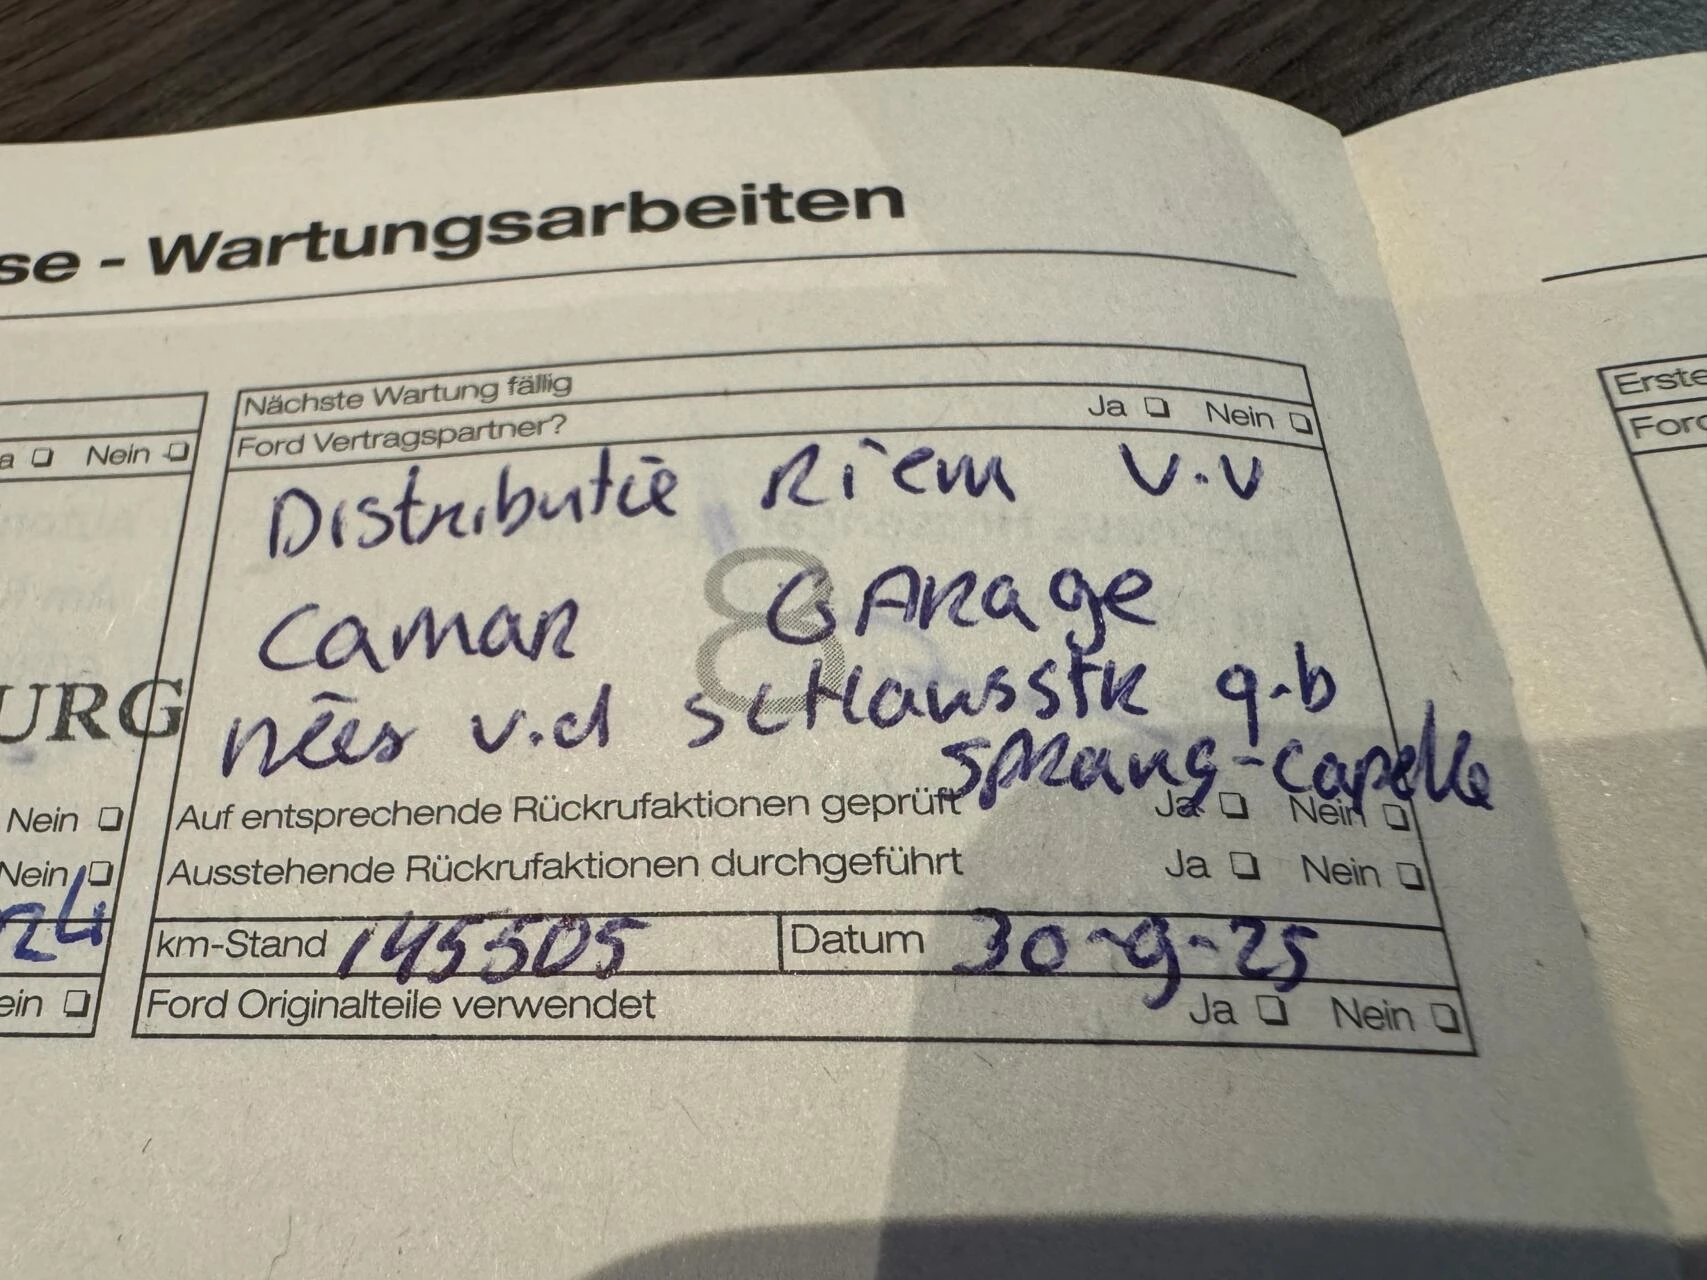 se - Wartungsarbeiten
Nächste Wartung fällig
Ford Vertragspartner? Ja Nein
Distributie Riem v.v
8
Camar GARage
nées v.d scHansstR 9.b
SpRang-Capelle
Auf entsprechende Rückrufaktionen geprüft Ja Nein
Ausstehende Rückrufaktionen durchgeführt Ja Nein
km-Stand 145505 Datum 30-9-25
Ford Originalteile verwendet Ja Nein
a Nein
URG
Nein
Nein
24
ein
Erste
Ford